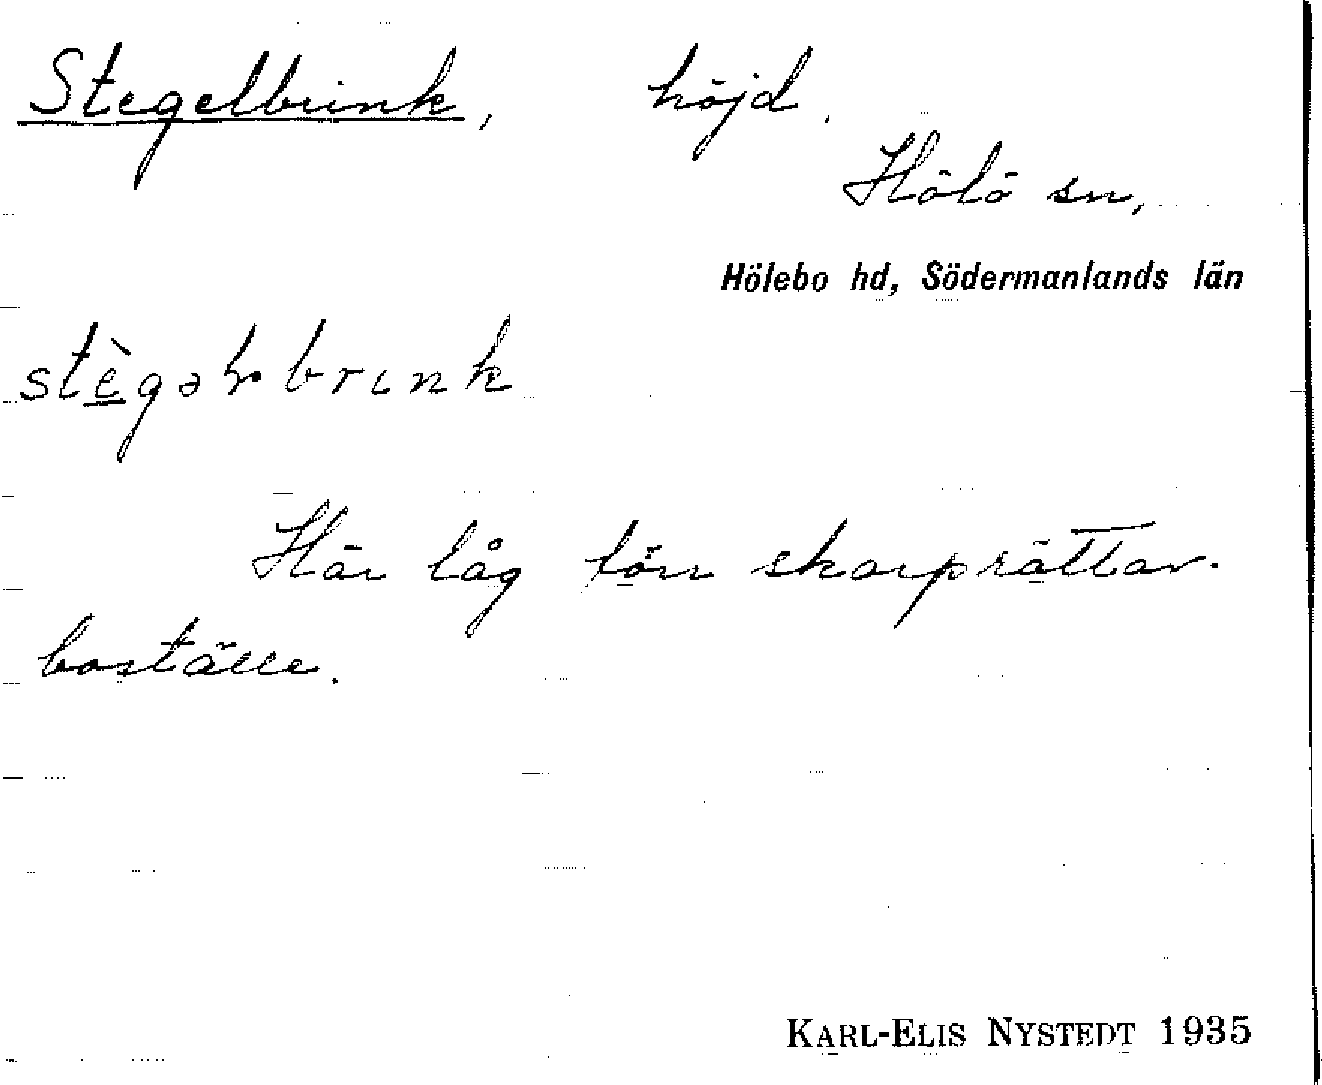 Stegelbrink, höjd.
Hölö sn,
Hölebo hd, Södermanlands län
stègəlbrınk
Här låg förr skarprättar-
boställe.
KARL-ELIS NYSTEDT 1935